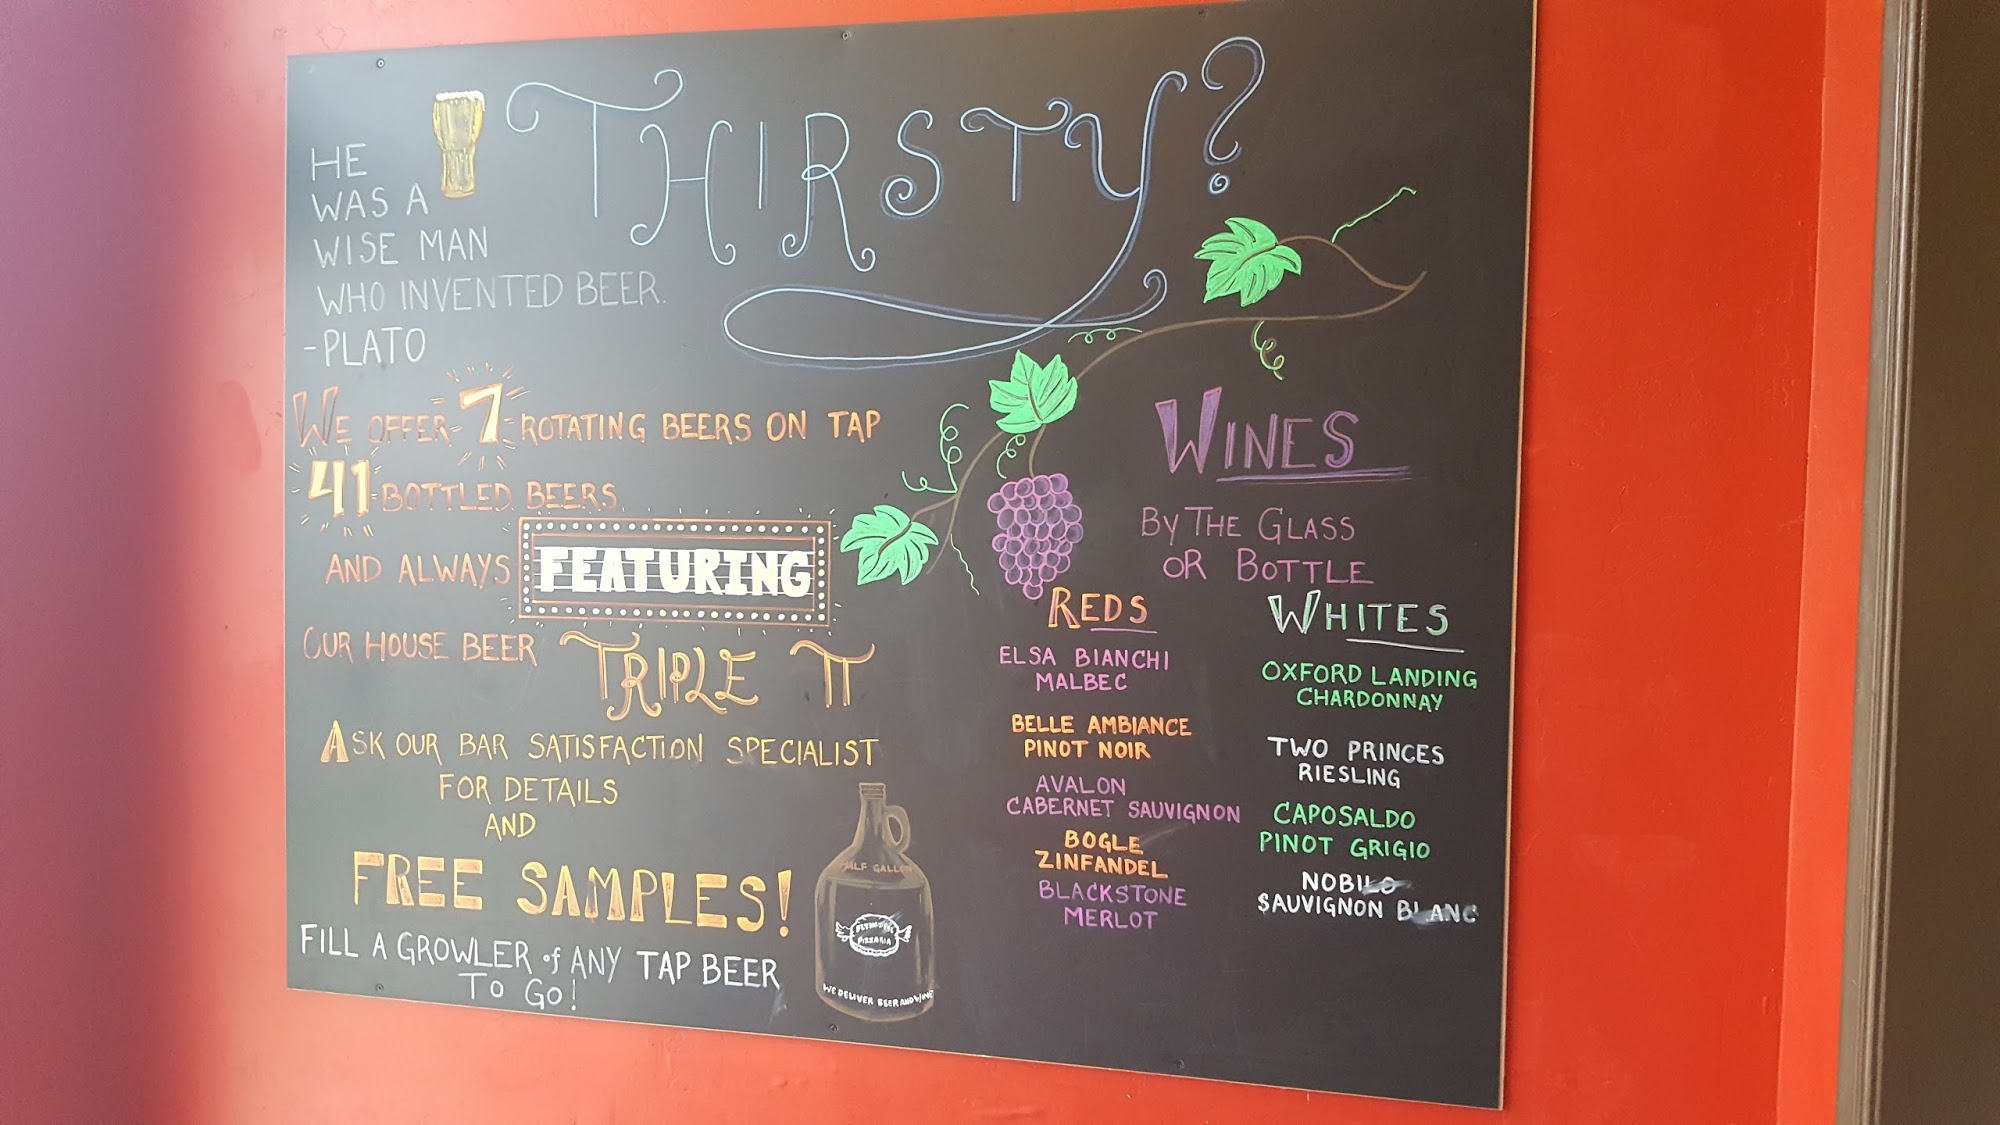 THIRSTY?
HE
WAS A
WISE MAN
WHO INVENTED BEER.
-PLATO
WE OFFER 7 ROTATING BEERS ON TAP
41 BOTTLED BEERS
AND ALWAYS FEATURING
OUR HOUSE BEER TRIPLE π
ASK OUR BAR SATISFACTION SPECIALIST
FOR DETAILS
AND
FREE SAMPLES!
FILL A GROWLER of ANY TAP BEER
TO GO!
HALF GALLON
PIZZERIA
WE DELIVER BEER AND WINE
WINES
BY THE GLASS
OR BOTTLE
REDS
ELSA BIANCHI
MALBEC
BELLE AMBIANCE
PINOT NOIR
AVALON
CABERNET SAUVIGNON
BOGLE
ZINFANDEL
BLACKSTONE
MERLOT
WHITES
OXFORD LANDING
CHARDONNAY
TWO PRINCES
RIESLING
CAPOSALDO
PINOT GRIGIO
NOBILO
SAUVIGNON BLANC